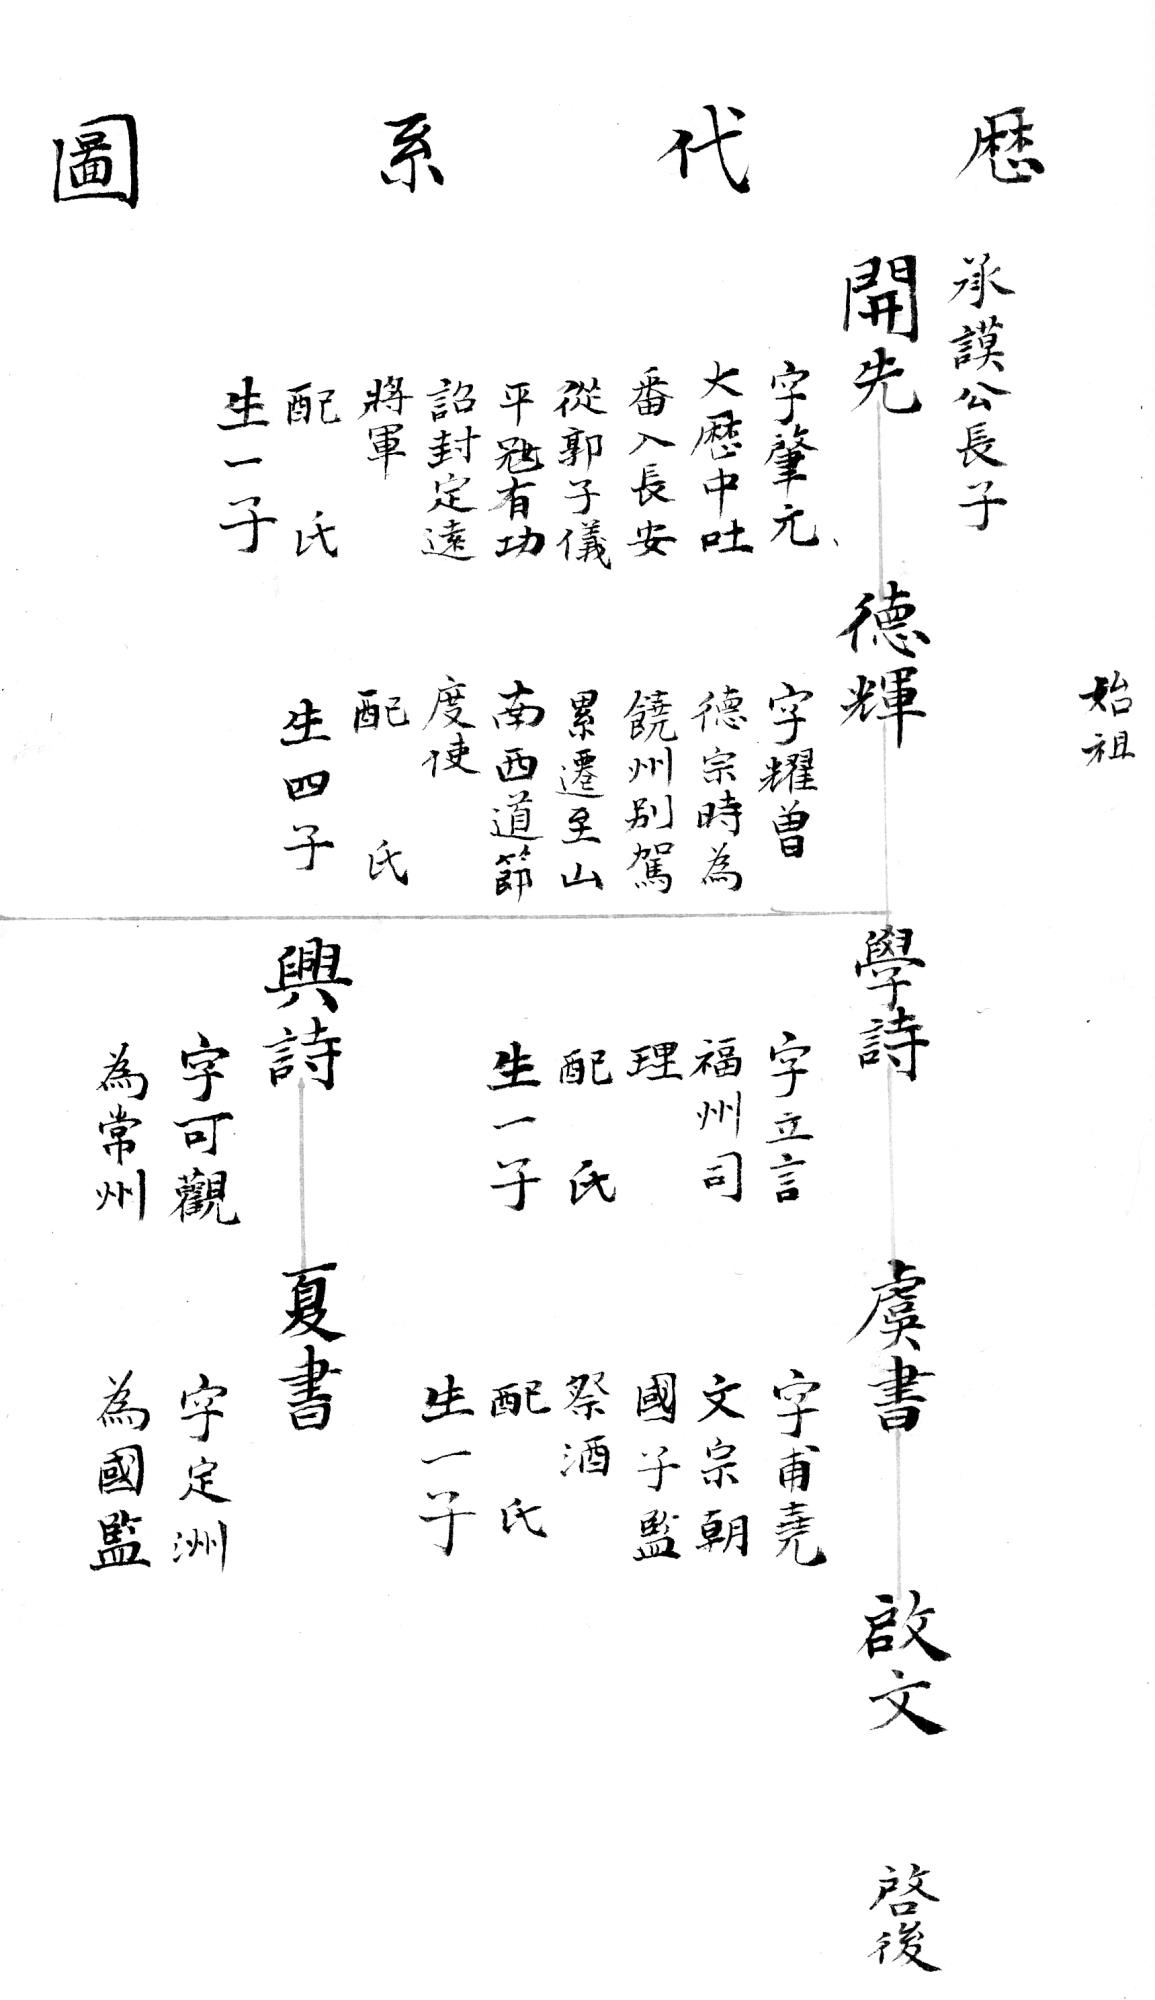 始祖
歴代系圖
承謨公長子
開先
字肇元
大歴中吐
番入長安
從郭子儀
平冦有功
詔封定遠
將軍
配 氏
生一子
德輝
字耀曾
德宗時為
饒州别駕
累遷至山
南西道節
度使
配 氏
生四子
學詩
字立言
福州司
理
配 氏
生一子
興詩
字可觀
為常州
虞書
字甫堯
文宗朝
國子監
祭酒
配 氏
生一子
夏書
字定洲
為國監
啟文
啓後